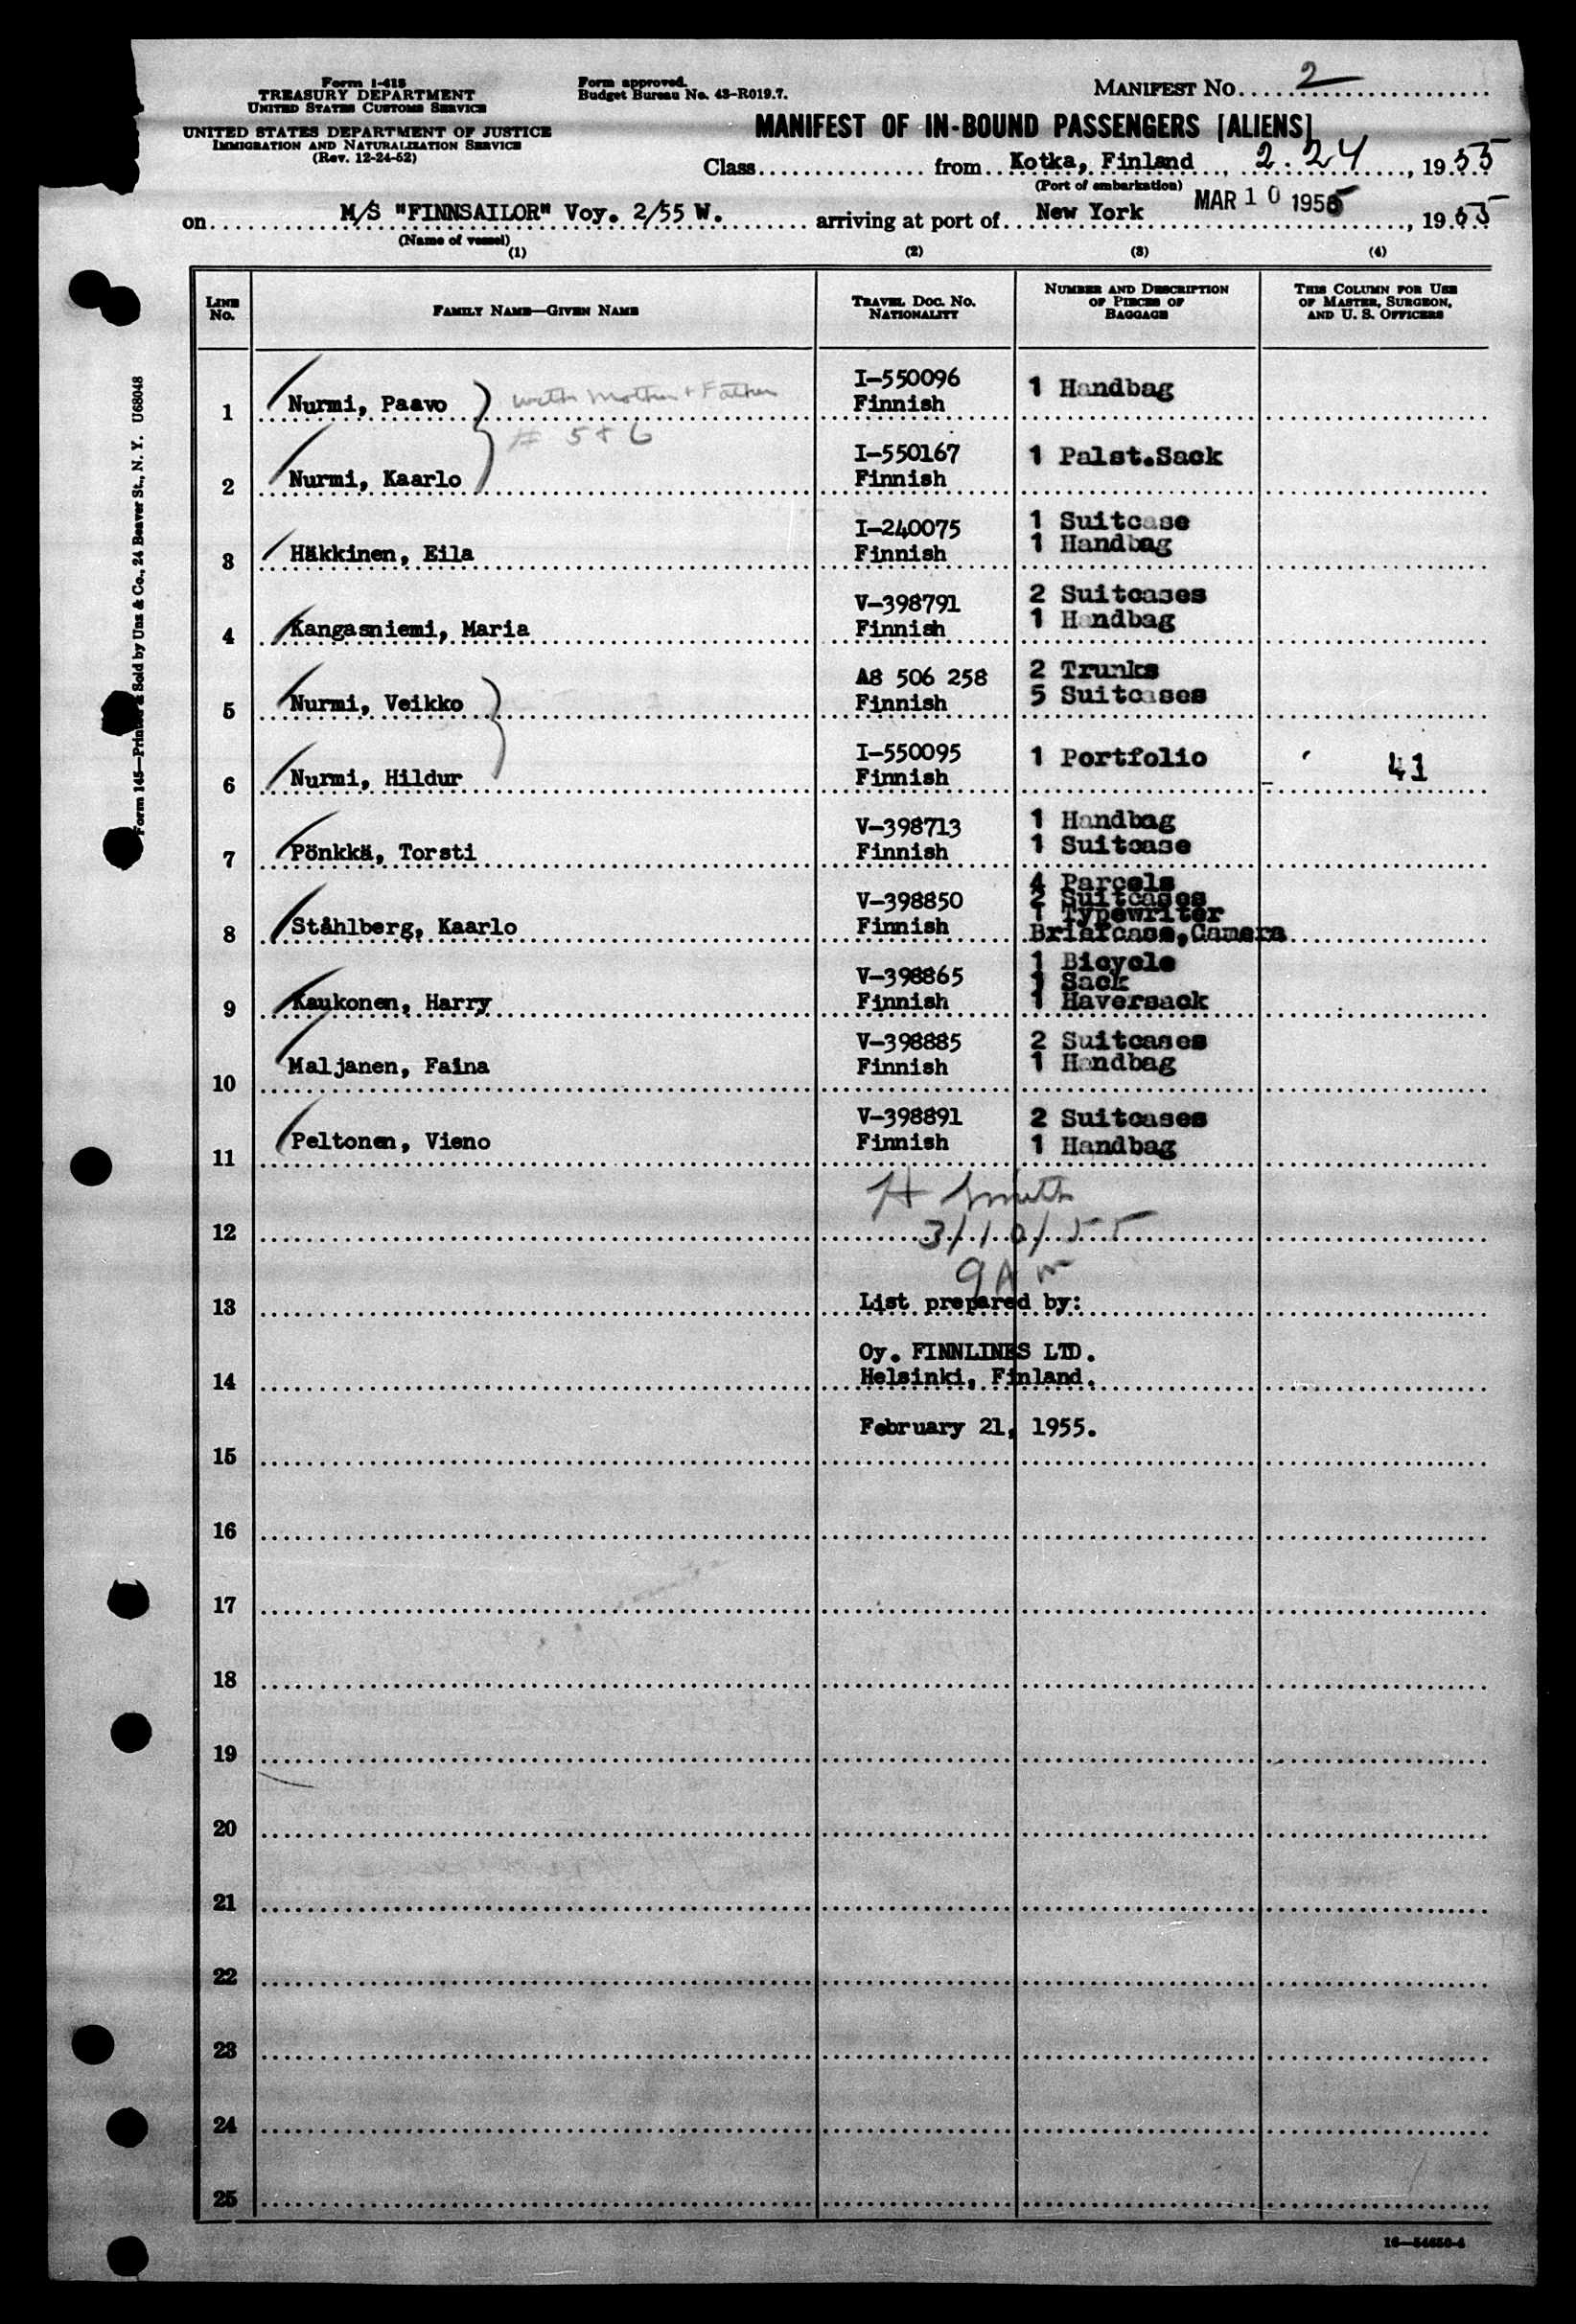 Form I-418
TREASURY DEPARTMENT
UNITED STATES CUSTOMS SERVICE
UNITED STATES DEPARTMENT OF JUSTICE
IMMIGRATION AND NATURALIZATION SERVICE
(Rev. 12-24-52)
Form approved.
Budget Bureau No. 43-R019.7.
MANIFEST NO. 2
MANIFEST OF IN-BOUND PASSENGERS [ALIENS]
Class from Kotka, Finland, 2.24, 1955
(Port of embarkation)
on M/S "FINNSAILOR" Voy. 2/55 W. arriving at port of New York MAR 10 1955, 1955
(Name of vessel)
(1) (2) (3) (4)
LINE NO. FAMILY NAME—GIVEN NAME TRAVEL DOC. NO. NATIONALITY NUMBER AND DESCRIPTION OF PIECES OF BAGGAGE THIS COLUMN FOR USE OF MASTER, SURGEON, AND U. S. OFFICERS
1 Nurmi, Paavo with mother + Father I-550096 Finnish 1 Handbag
# 5 + 6
2 Nurmi, Kaarlo I-550167 Finnish 1 Palst.Sack
3 Häkkinen, Eila I-240075 Finnish 1 Suitcase 1 Handbag
4 Kangasniemi, Maria V-398791 Finnish 2 Suitcases 1 Handbag
5 Nurmi, Veikko A8 506 258 Finnish 2 Trunks 5 Suitcases
6 Nurmi, Hildur I-550095 Finnish 1 Portfolio 41
7 Pönkkä, Torsti V-398713 Finnish 1 Handbag 1 Suitcase
8 Ståhlberg, Kaarlo V-398850 Finnish 4 Parcels 2 Suitcases 1 Typewriter Briefcase,Camera
9 Kaukonen, Harry V-398865 Finnish 1 Bicycle 1 Sack 1 Haversack
10 Maljanen, Faina V-398885 Finnish 2 Suitcases 1 Handbag
11 Peltonen, Vieno V-398891 Finnish 2 Suitcases 1 Handbag
H Smith
12 3/10/55
9 AM
13 List prepared by:
Oy. FINNLINES LTD.
14 Helsinki, Finland.
February 21, 1955.
15
16
17
18
19
20
21
22
23
24
25
Form 145—Printed & Sold by Unz & Co., 24 Beaver St., N. Y. U68048